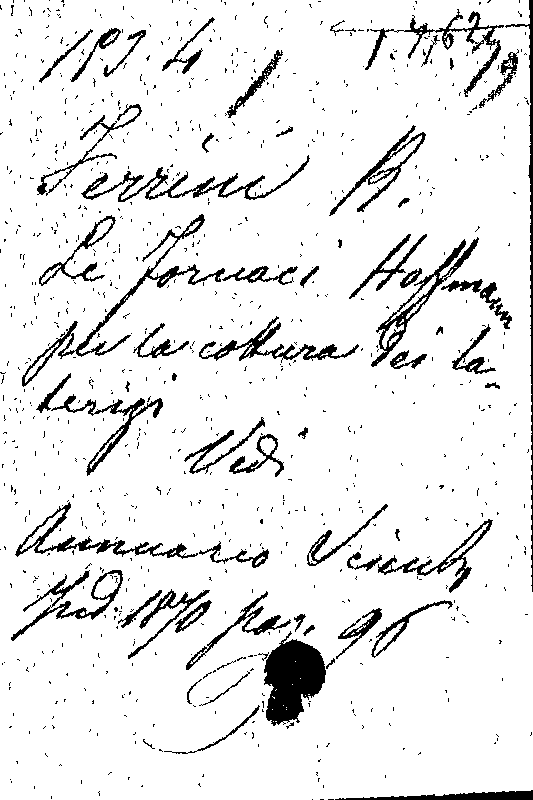 193. 4
Ferrini R.
Le Fornaci Hoffmann
per la cottura dei la-
terizi
Vedi
Annuario Scientif.
Ind. 1870 pag. 96